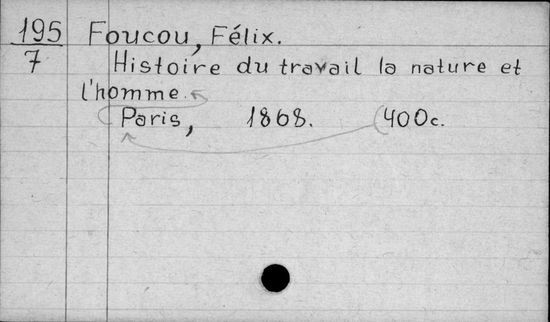 195
7
Foucou, Félix.
Histoire du travail la nature et
l'homme.
Paris, 1868. 400c.